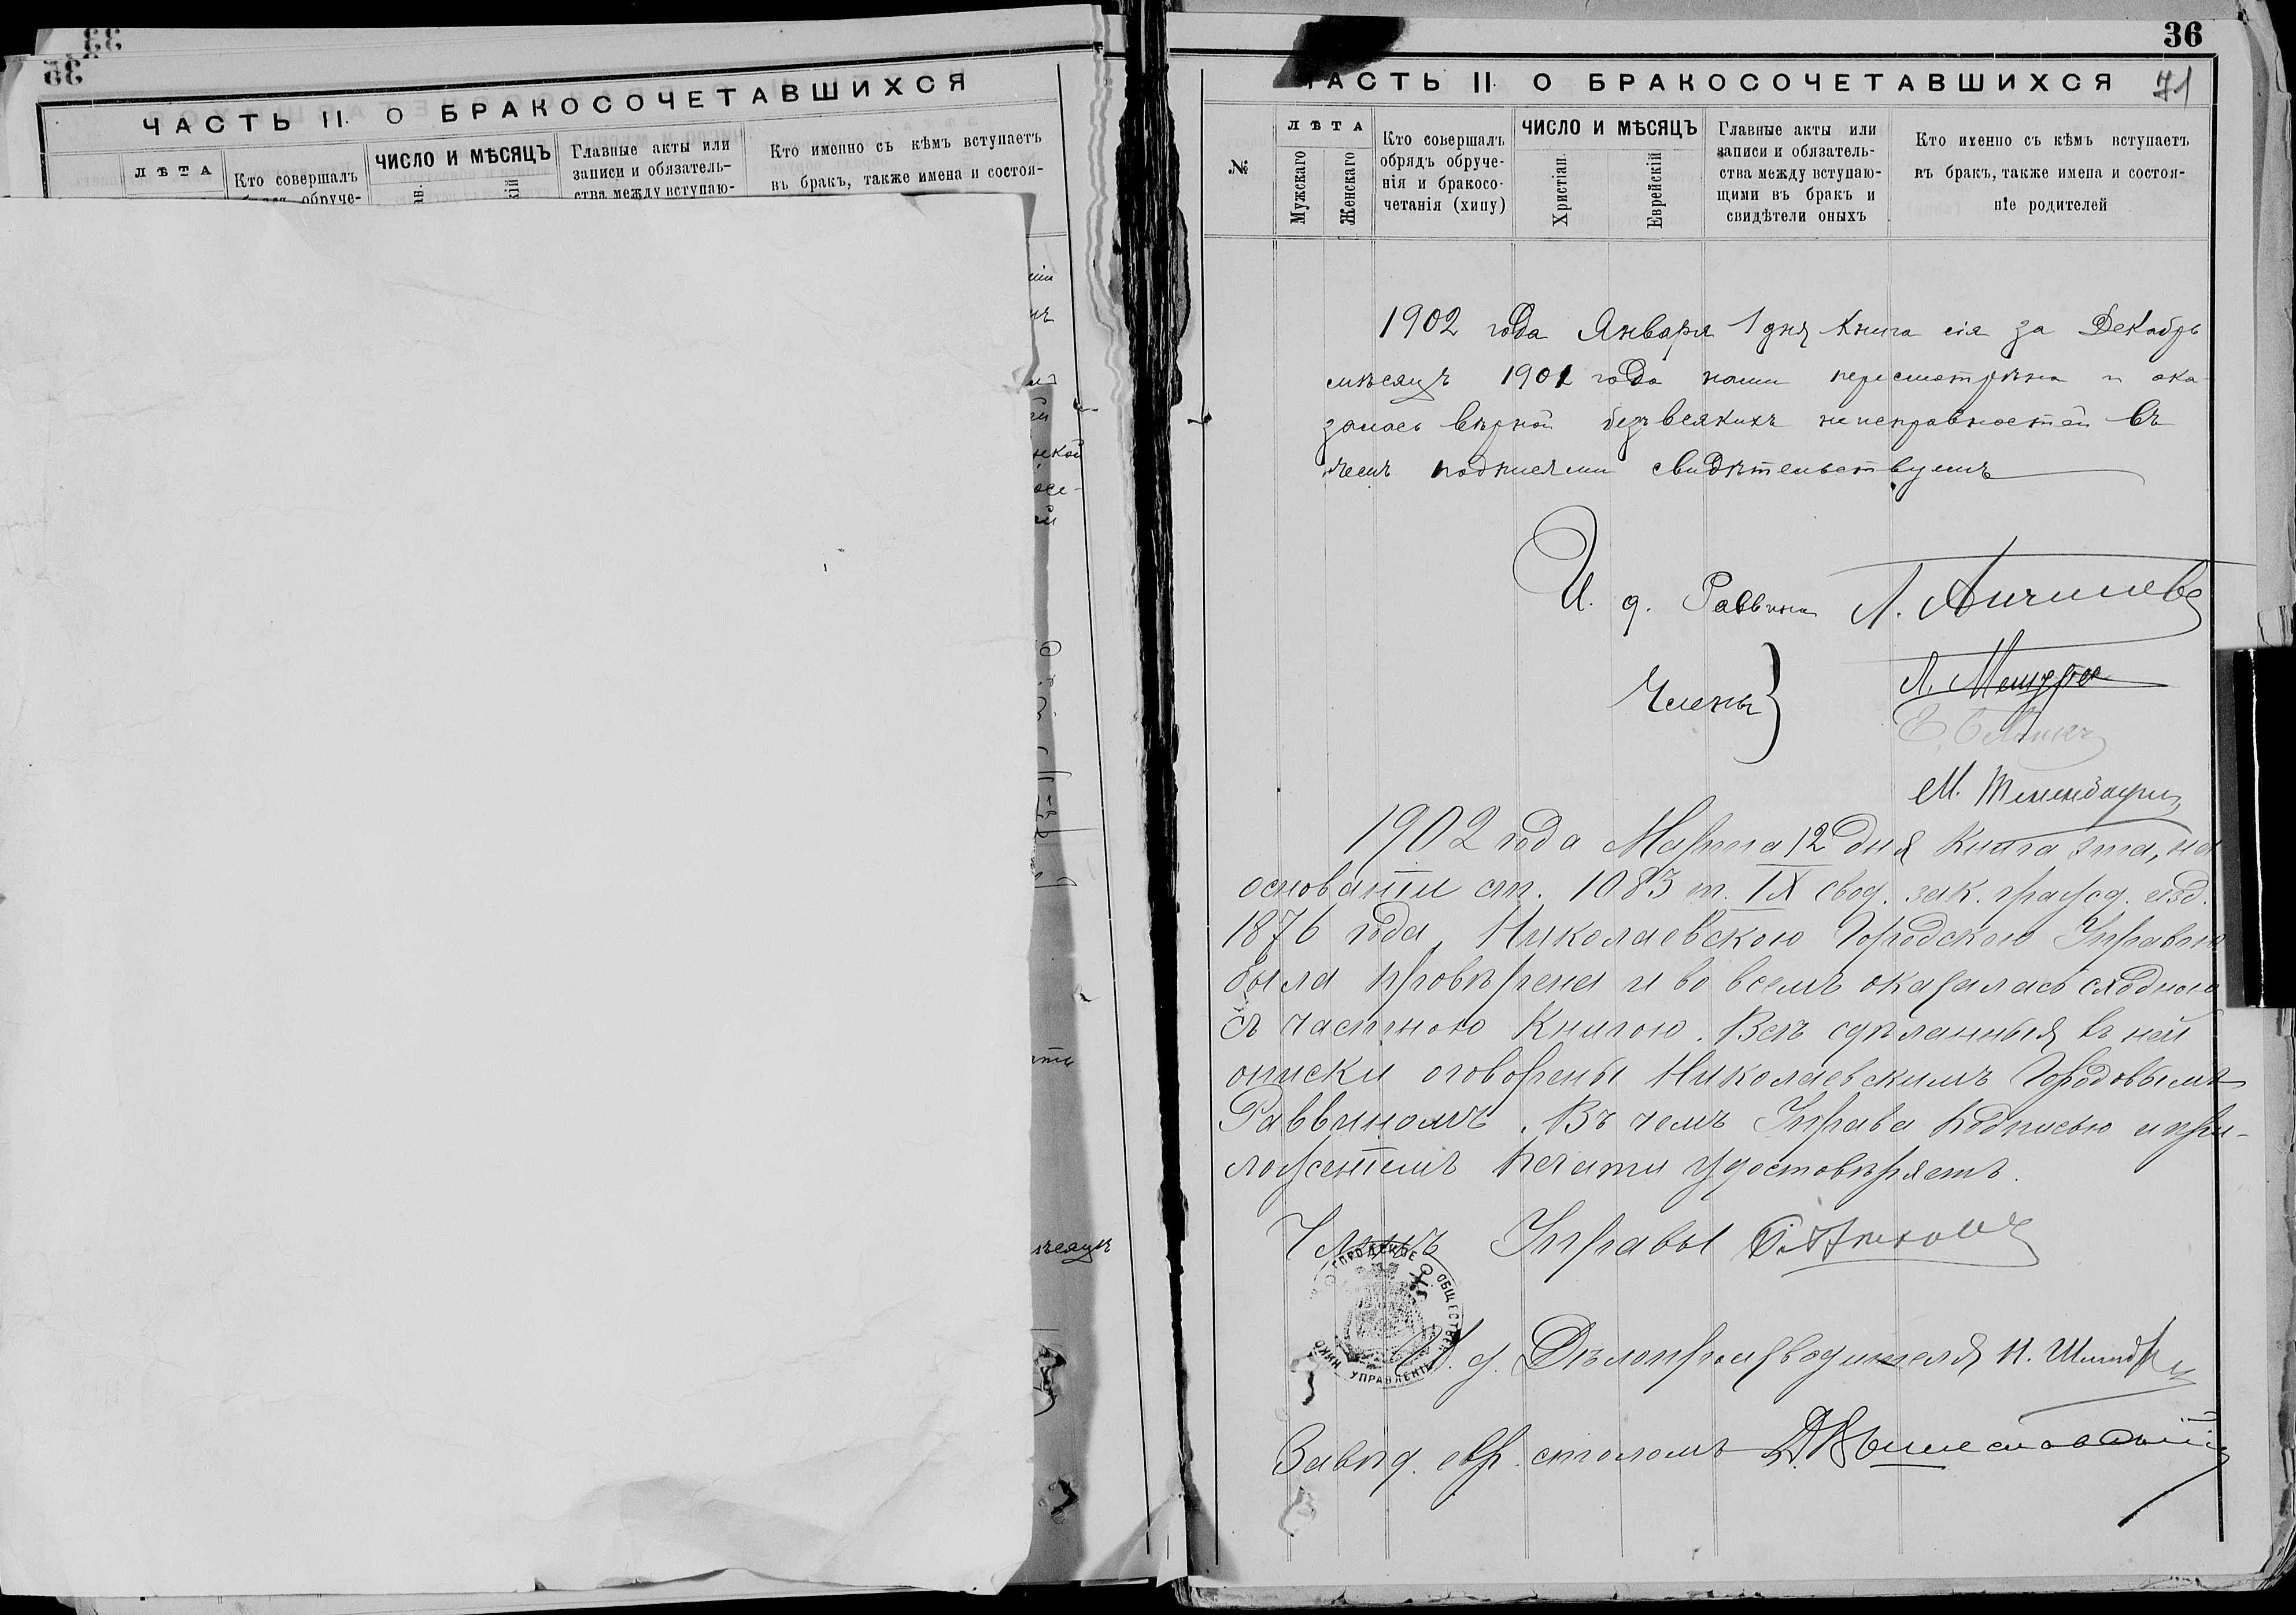 33
32
ЧАСТЬ II. О БРАКОСОЧЕТАВШИХСЯ
ЛѢТА
Кто совершалъ
обруче-
ЧИСЛО И МѢСЯЦЪ
Главные акты или
записи и обязатель-
ства между вступаю-
Кто именно съ кѣмъ вступаетъ
въ бракъ, также имена и состоя-
36
ЧАСТЬ II. О БРАКОСОЧЕТАВШИХСЯ
71
№
ЛѢТА
Мужскаго
Женскаго
Кто совершалъ
обрядъ обруче-
нія и бракосо-
четанія (хипу)
ЧИСЛО И МѢСЯЦЪ
Христіан.
Еврейскій
Главные акты или
записи и обязатель-
ства между вступаю-
щими въ бракъ и
свидѣтели оныхъ
Кто именно съ кѣмъ вступаетъ
въ бракъ, также имена и состоя-
ніе родителей
1902 года Января 1 дня книга сія за Декабрь
мѣсяцъ 1901 года нами пересмотрѣна и ока-
залась вѣрной безъ всякихъ неисправностей въ
чемъ подписями свидѣтельствуемъ
И. д. Раввина Л.
Члены
Л.
М.
1902 года Марта 12 дня Книга эта, на
основаніи ст. 1083 т. IX свод. зак. гражд. изд.
1876 года, Николаевскою Городскою Управою
была провѣрена и во всемъ оказалась сходною
съ частною Книгою. Всѣ сдѣланныя въ ней
описки оговорены Николаевскимъ Городовымъ
Раввиномъ. Въ чемъ Управа подписью и при-
ложеніемъ печати удостовѣряетъ.
Членъ Управы
ГОРОДСКОЕ ОБЩЕСТВЕН УПРАВЛЕНІЕ НИКО
И. д. Дѣлопроизводителя Н.
Завѣд. евр. столомъ